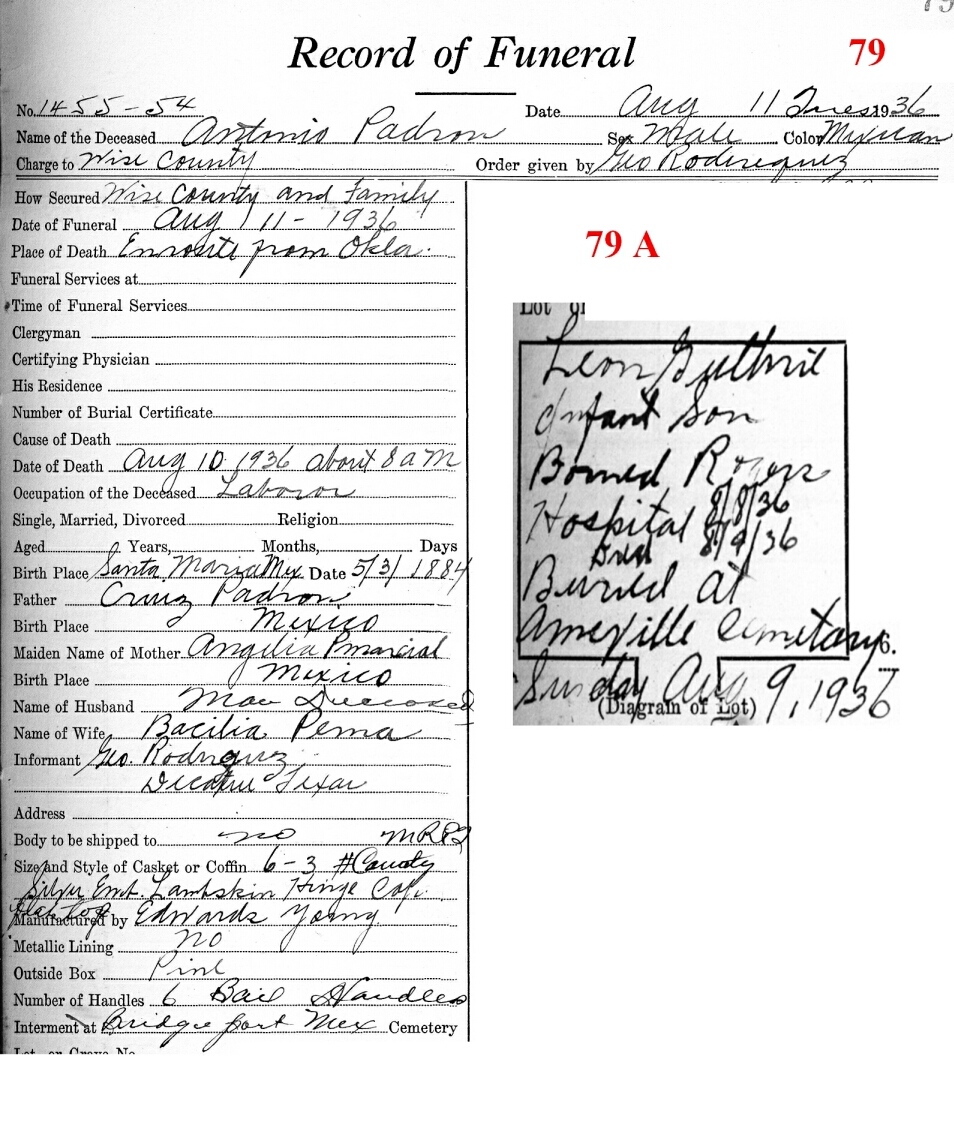 79
Record of Funeral
79
No. 1455-54 Date Aug 11 Tues 1936
Name of the Deceased Antonio Padron Sex Male Color Mexican
Charge to Wise County Order given by Geo Roderequez
How Secured Wise County and Family
Date of Funeral Aug 11-1936
Place of Death Enroute from Okla.
Funeral Services at
Time of Funeral Services
Clergyman
Certifying Physician
His Residence
Number of Burial Certificate
Cause of Death
Date of Death Aug 10 1936 about 8 a m
Occupation of the Deceased Laboror
Single, Married, Divorced Religion
Aged Years, Months, Days
Birth Place Santa Maria Mex. Date 5/3/1884
Father Cruz Padron
Birth Place Mexico
Maiden Name of Mother Angilia
Birth Place Mexico
Name of Husband
Name of Wife Bacilia Pema
Informant Geo. Rodriguez
Decatur Texas
Address
Body to be shipped to no
Size and Style of Casket or Coffin 6-3 # County
Silver Emb. Lambskin Hinge Cap.
flat top
Manufactured by Edwards Young
Metallic Lining NO
Outside Box Pine
Number of Handles 6 Bail Handles
Interment at Bridgeport Mex Cemetery
Lot or Grave No.
79 A
Lot or
Leon Guthrie
Infant Son
Borned Rogers
Hospital 8/8/36
Died 8/9/36
Buried at
Ameyville Cemetary
6.
Sunday Aug 9, 1936
(Diagram of Lot)